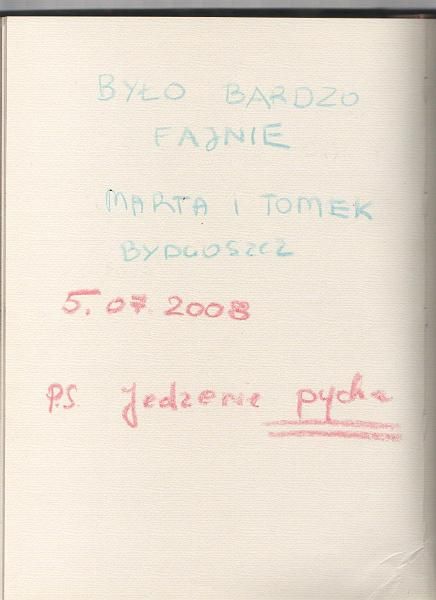 BYŁO BARDZO
FAJNIE
MARTA I TOMEK
BYDGOSZCZ
5.07 2008
P.S. Jedzenie pycha